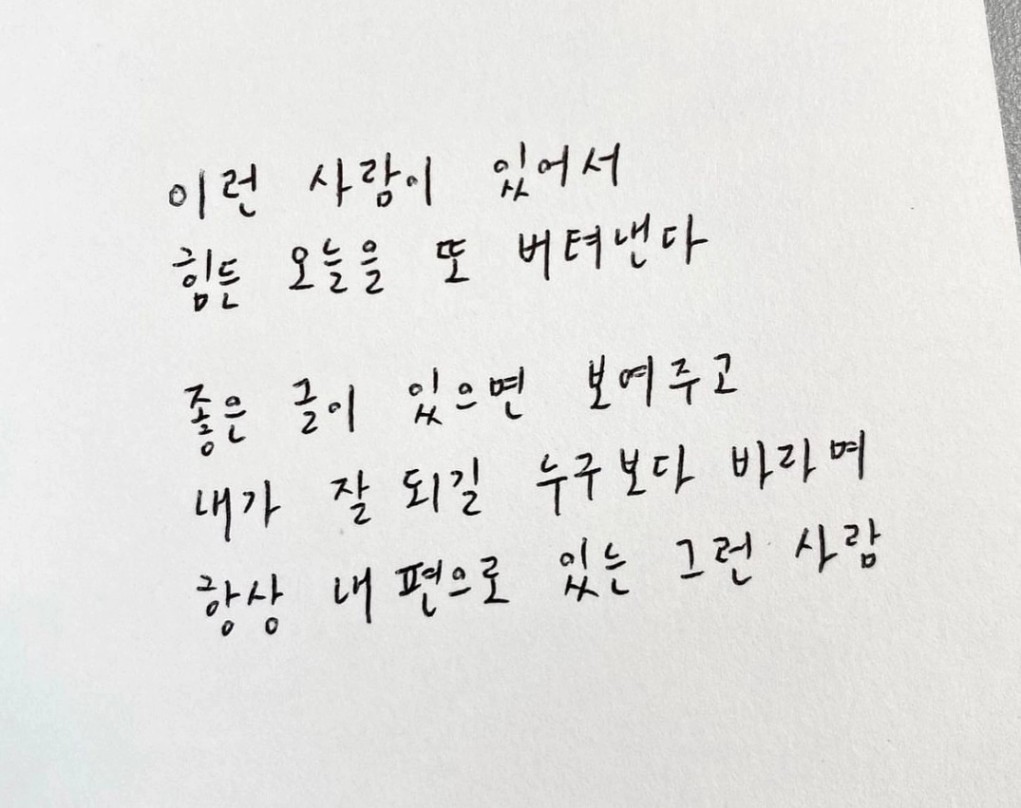 이런 사람이 있어서
힘든 오늘을 또 버텨낸다
좋은 글이 있으면 보여주고
내가 잘 되길 누구보다 바라며
항상 내 편으로 있는 그런 사람